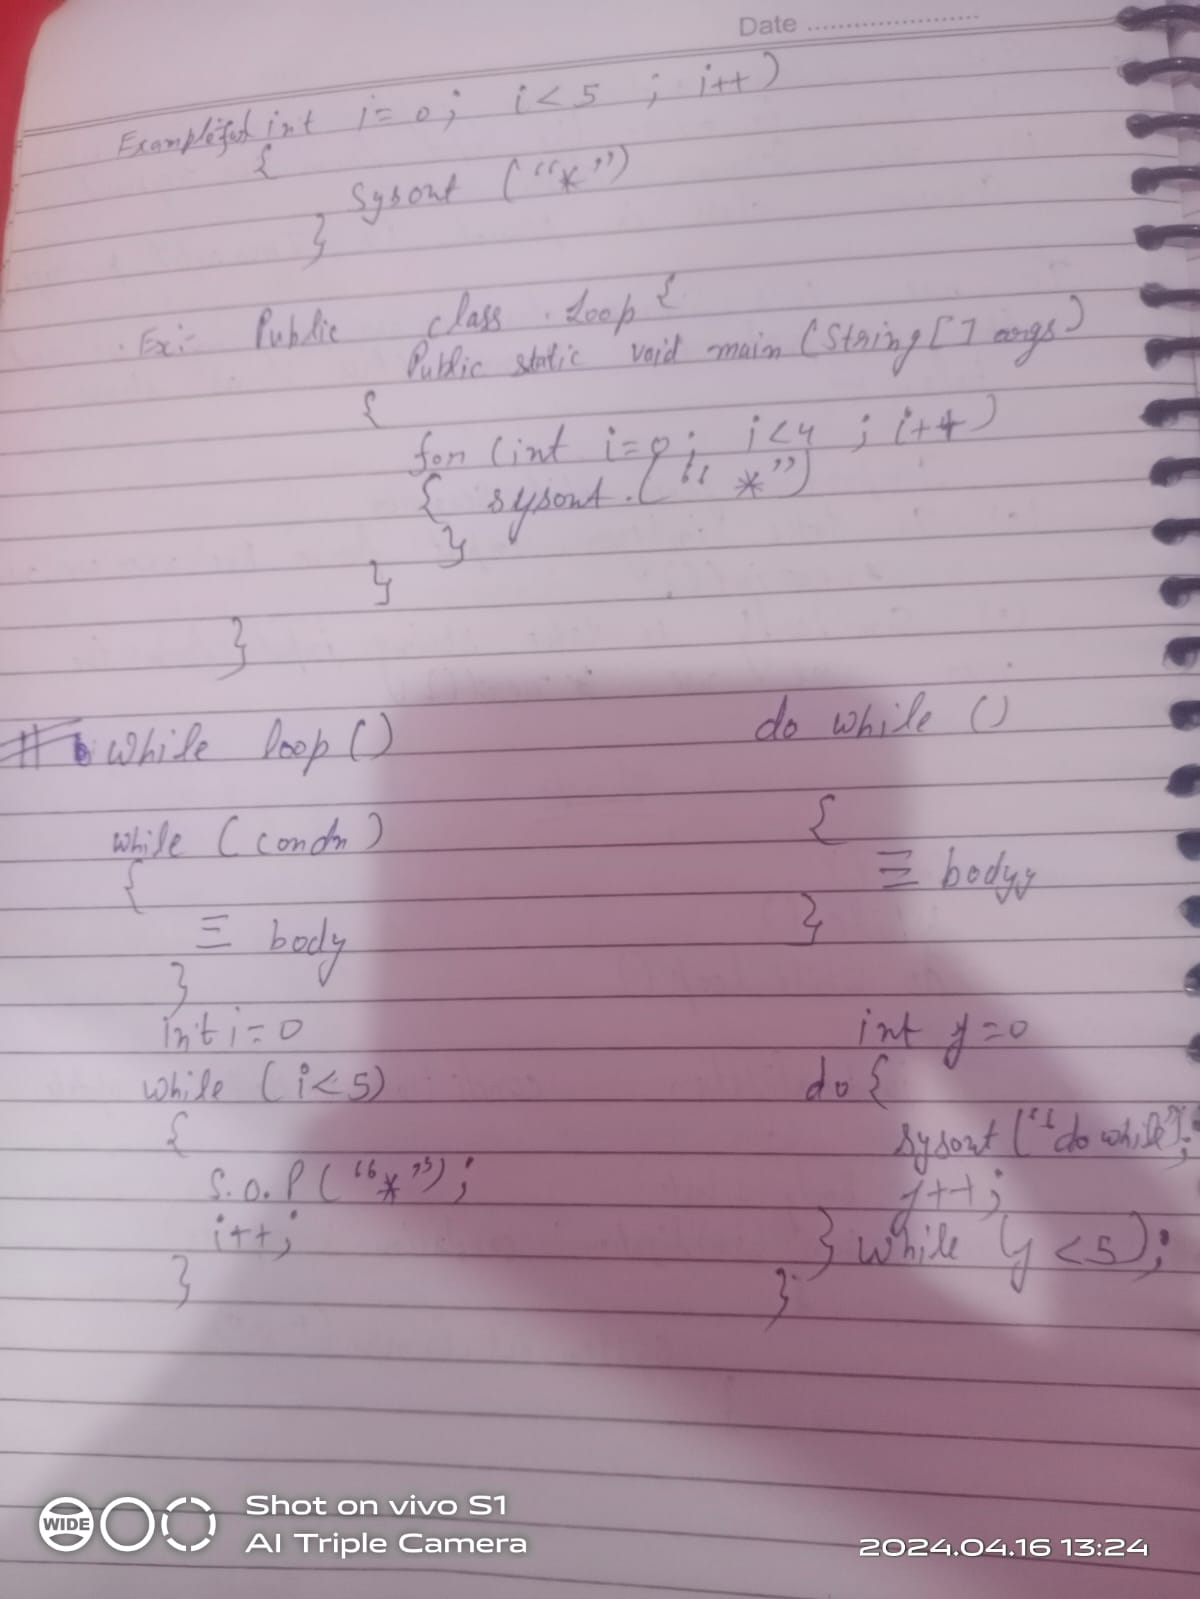 Date
Example: for int i=0; i<5 ; i++)
{
Sysout ("*")
}
Ex:- Public class Loop {
Public static void main (String [] args)
{
for (int i=0; i<4 ; i++)
{ sysout.(" *")
}
}
}
# while loop ()
while (condn)
{
body
}
int i=0
while (i<5)
{
S.O.P("*");
i++;
}
do while ()
{
bodyy
}
int y=0
do {
sysout ("do while");
y++;
} while (y<5);
}
WIDE
Shot on vivo S1
AI Triple Camera
2024.04.16 13:24